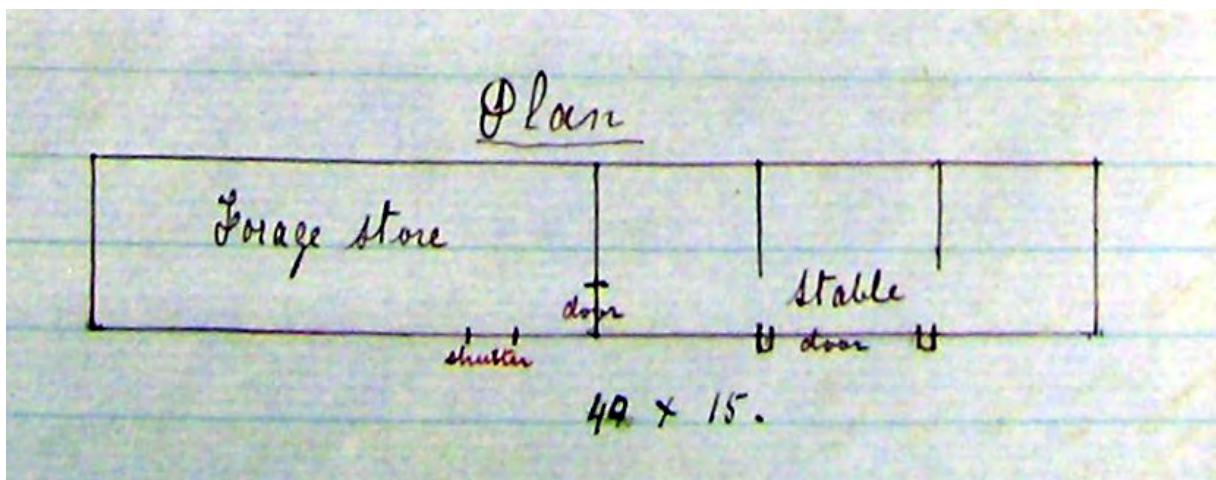 Plan
Forage store
door
stable
shutter
door
40 x 15.